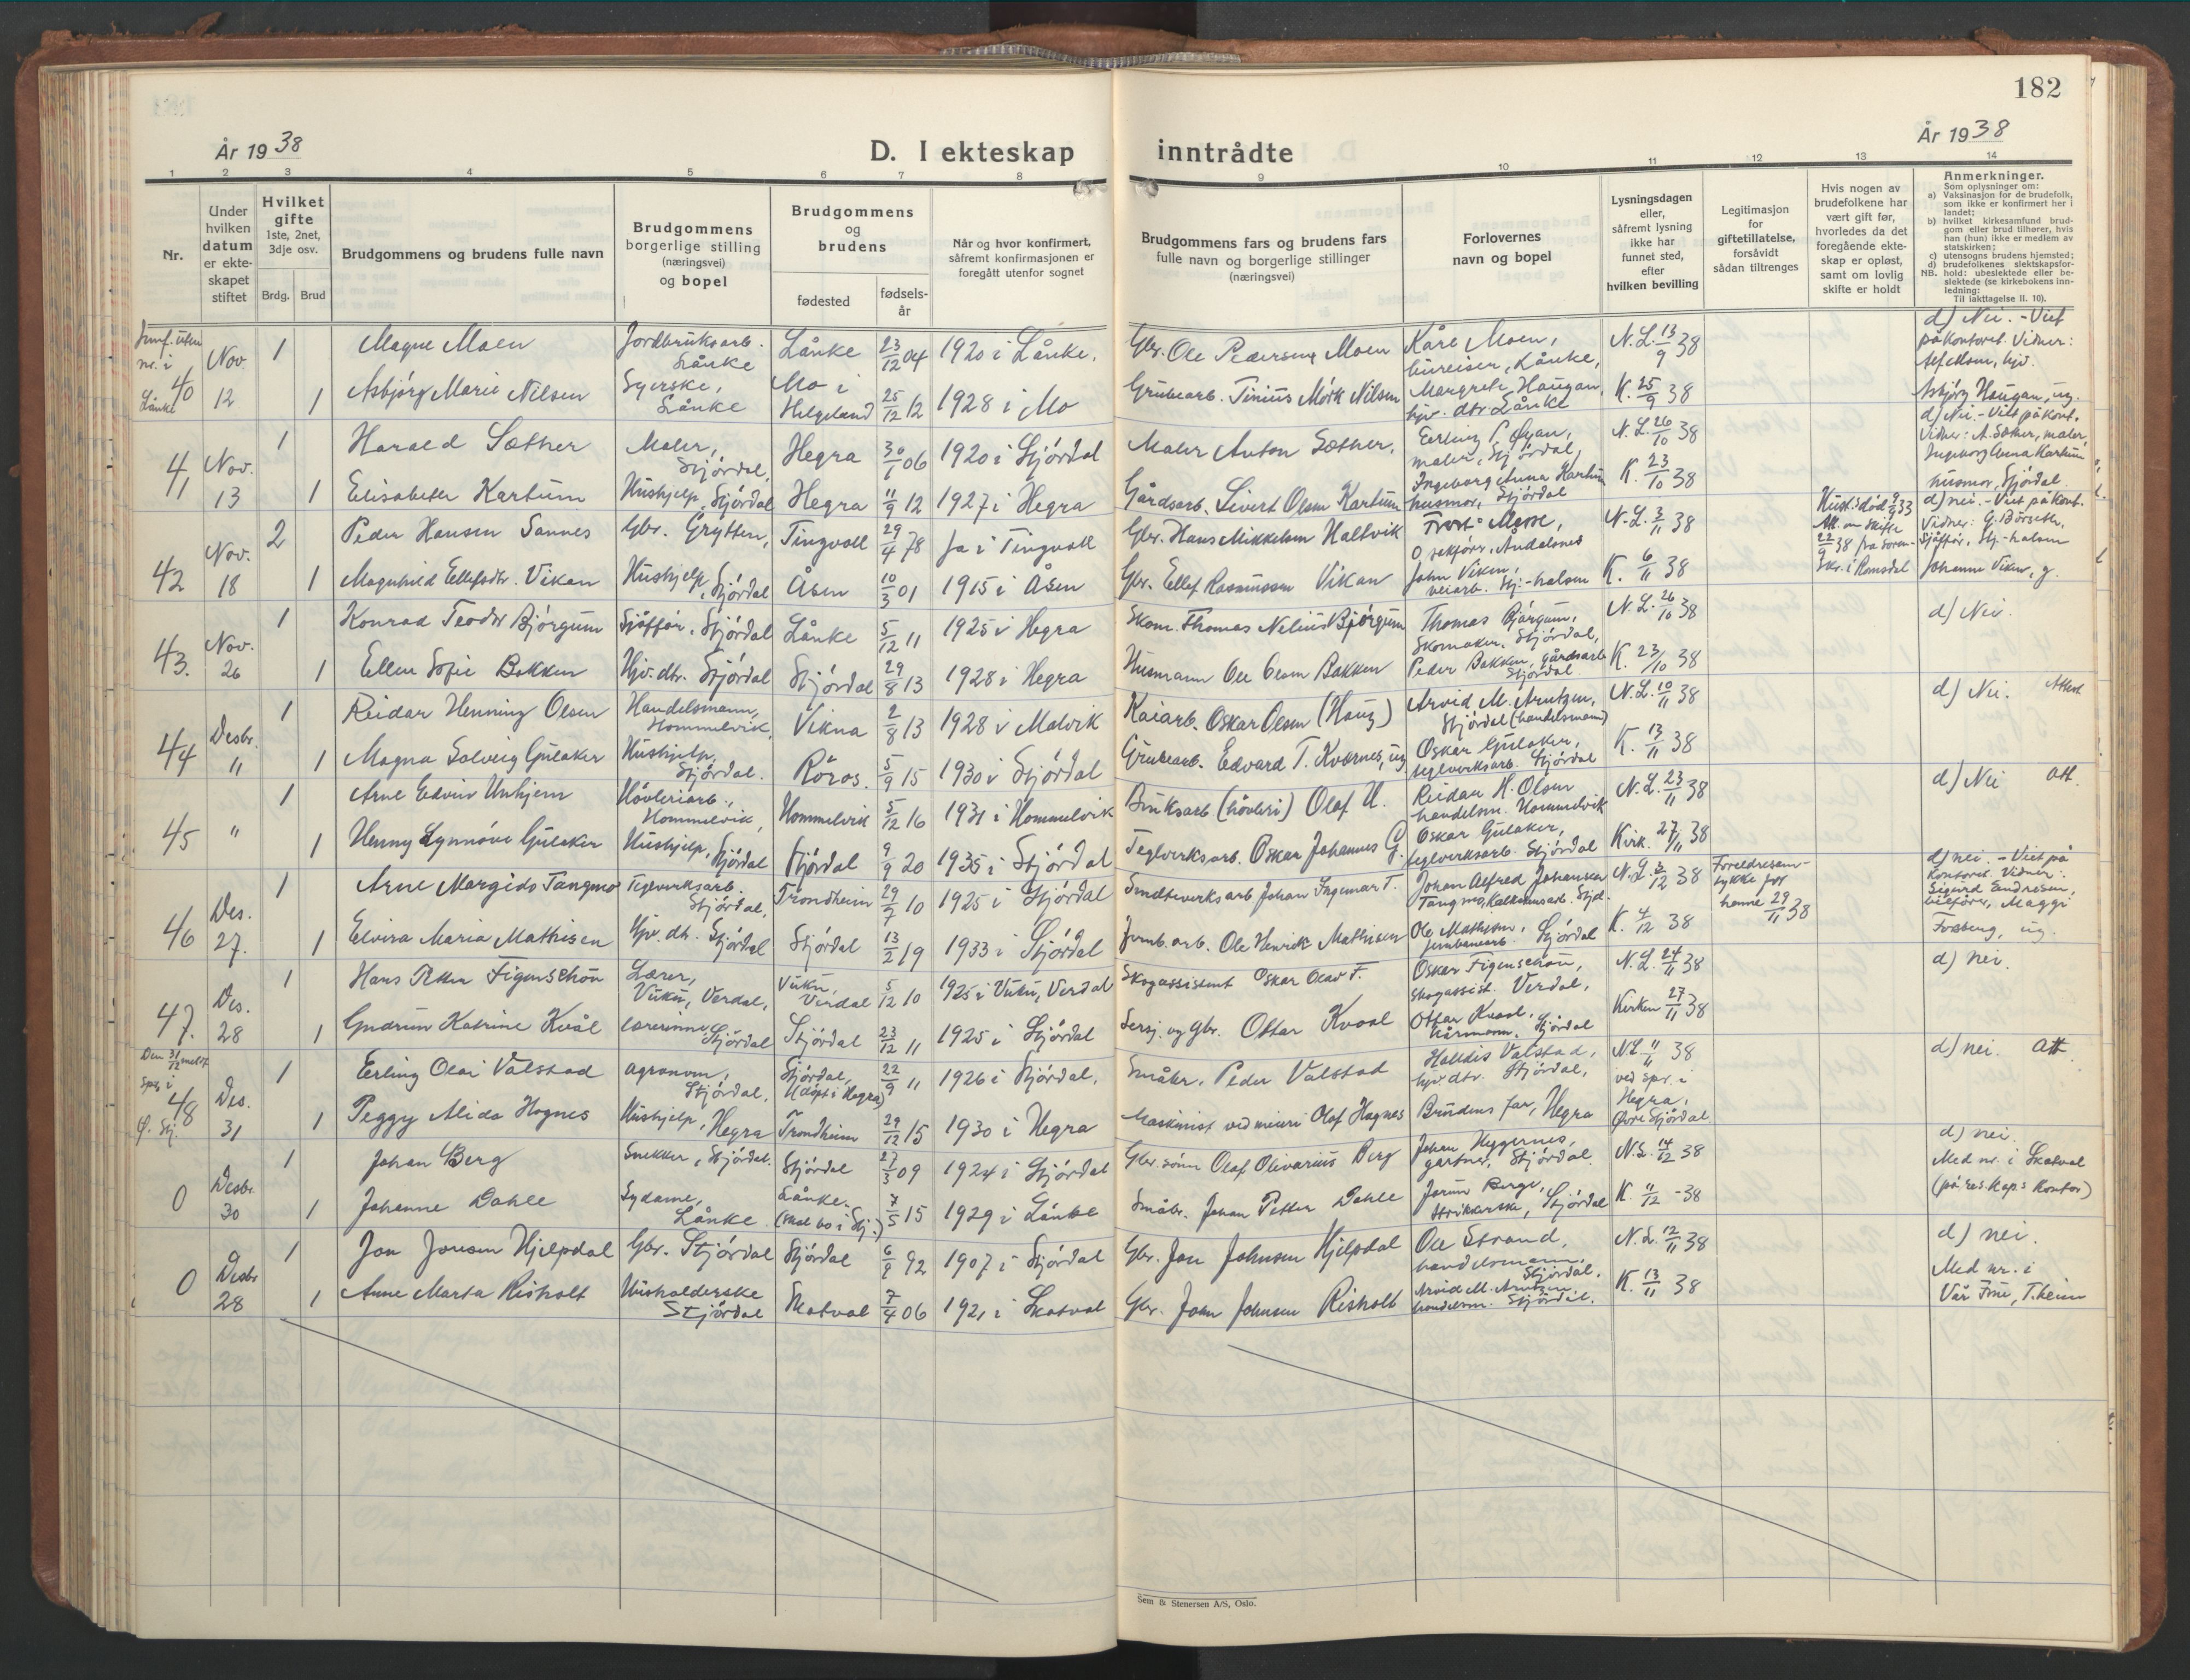 182
År 1938
D. I ekteskap inntrådte
År 1938
1 2 3 4 5 6 7 8 9 10 11 12 13 14
Nr.
Under hvilken datum er ekteskapet stiftet
Hvilket gifte 1ste, 2net, 3dje osv.
Brdg. Brud
Brudgommens og brudens fulle navn
Brudgommens borgerlige stilling (næringsvei) og bopel
Brudgommens og brudens
fødested
fødselsår
Når og hvor konfirmert, såfremt konfirmasjonen er foregått utenfor sognet
Brudgommens fars og brudens fars fulle navn og borgerlige stillinger (næringsvei)
Forlovernes navn og bopel
Lysningsdagen eller, såfremt lysning ikke har funnet sted, efter hvilken bevilling
Legitimasjon for giftetillatelse, forsåvidt sådan tiltrenges
Hvis nogen av brudefolkene har vært gift før, hvorledes da det foregående ekteskap er opløst, samt om lovlig skifte er holdt
Anmerkninger.
Som oplysninger om:
a) Vaksinasjon for de brudefolk, som ikke er konfirmert her i landet;
b) hvilket kirkesamfund brudgom eller brud tilhører, hvis han (hun) ikke er medlem av statskirken;
c) utensogns brudens hjemsted;
d) brudefolkenes slektskapsforhold: ubeslektede eller beslektede (se kirkebokens innledning:
NB. Til iakttagelse II. 10).
40 Nov. 12
1 Magne Moen Jordbruksarb. Lånke Lånke 23/12 04 1920 i Lånke. Gbr. Ole Pedersen Moen Kåre Moen, bureiser, Lånke, N.L. 13/9 38 d) Nei. - Viet på kontoret. Vidner:
1 Asbjørg Marie Nilsen Syerske, Lånke Mo i Helgeland 25/12 12 1928 i Mo Grubearb. Tinius Mørk Nilsen Margrete Haugan, hjv. dtr. Lånke K. 25/9 38 Asbjørg Haugan, ug.
41 Nov. 13
1 Harald Sæther Maler, Stjørdal, Hegra 30/1 06 1920 i Stjørdal Maler Anton Sæther. Erling P. Øyan, maler, Stjørdal, N.L. 26/10 38 d) Nei - Viet på kont. Vidner: A. Sæther, maler,
1 Elisabeth Kartum Hushjelp, Stjørdal Hegra 11/9 12 1927 i Hegra Gårdsarb. Sivert Olsen Kartum Ingeborg Anna Kartum husmor, Stjørdal K. 23/10 38 Ingeborg Anna Kartum husmor, Stjørdal
42 Nov. 18
2 Peder Hansen Sannes Gbr. Grytten, Tingvoll 29/4 78 ja i Tingvoll Gbr. Hans Mikkelsen Haltvik Åndalsnes N.L. 3/11 38 Hust. død 9/9 33 Att. om skifte 22/9 38 fra Soren- skr. i Romsdal d) nei. - Viet på kont. Vidner: G. Børseth, Sjåffør, Stj.-halsen
1 Magnhild Ellefsdtr. Vikan Hushjelp, Stjørdal Åsen 10/3 01 1915 i Åsen Gbr. Ellef Rasmussen Vikan John Viken, veiarb. Stj.-halsen K. 6/11 38 Johanne Viken, g.
43. Nov. 26
1 Konrad Teodor Bjørgum Sjåffør, Stjørdal Lånke 5/12 11 1925 i Hegra Skom. Thomas Nelius Bjørgum Thomas Bjørgum, Skomaker, Stjørdal, N.L. 26/10 38 d) Nei.
1 Ellen Sofie Bakken Hjv. dtr. Stjørdal Stjørdal 29/8 13 1928 i Hegra Husmann Ole Olsen Bakken Peder Bakken, gårdsarb Stjørdal K. 23/10 38
44 Desbr. "
1 Reidar Henning Olsen Handelsmann, Hommelvik, Vikna 2/8 13 1928 i Malvik Kaiarb. Oskar Olsen (Haug) Arvid M. Arntzen, Stjørdal (handelsmann) N.L. 10/11 38 d) Nei. Attest
1 Magna Solveig Gulaker Hushjelp, Stjørdal. Røros. 5/9 15 1930 i Stjørdal Grubearb. Edvard T. Kværnes, ug Oskar Gulaker, teglverksarb. Stjørdal K. 13/11 38
45 "
1 Arne Edvin Unhjem Høvleriarb., Hommelvik, Hommelvik 5/12 16 1931 i Hommelvik Bruksarb (høvleri) Olaf U. Reidar H. Olsen handelsm. Hommelvik N.L. 23/11 38 d) Nei Att.
1 Henny Synnøve Gulaker Hushjelp, Stjørdal Stjørdal 9/9 20 1935 i Stjørdal Teglverksarb. Oskar Johannes G. Oskar Gulaker, teglverksarb. Stjørdal Kirk. 27/11 38
46 Des. 27.
1 Arne Margido Tangmo Teglverksarb. Stjørdal, Trondheim 29/7 10 1925 i Stjørdal Smelteverksarb Johan Ingemar T. Johan Alfred Johansen N.L. 2/12 38 Foreldresamtykke for henne 29/11 38 d) nei. - Viet på kontoret. Vidner: Sigurd Endresen, bilfører, Maggi
1 Elvira Maria Mathisen Hjv. dtr. Stjørdal Stjørdal 13/2 19 1933 i Stjørdal Jernb. arb. Ole Henrik Mathisen Ole Mathisen, jernbanearb. Stjørdal K. 4/12 38 Forberg, ug.
47. Des. 28
1 Hans Peter Figenschou Lærer, Vuku, Verdal, Vuku, Verdal 5/12 10 1925 i Vuku, Verdal Skogassistent Oskar Olav F. Oskar Figenschou, skogassist. Verdal, N.L. 24/11 38 d) nei.
1 Gudrun Katrine Kvål lærerinne, Stjørdal Stjørdal 23/12 11 1925 i Stjørdal Sersj. og gbr. Ottar Kvaal Ottar Kvaal, Stjørdal Kirken 27/11 38
48 Des. 31
1 Erling Olai Valstad agronom, Stjørdal, Stjørdal, (døpt i Hegra) 22/9 11 1926 i Stjørdal. Småbr. Peder Valstad Halldis Valstad, hjv. dtr. Stjørdal, N.L. 11/11 38 ved spr. i Hegra, Øvre Stjørdal d) nei. Att.
1 Peggy Alida Hognes Hushjelp, Hegra Trondheim 29/12 15 1930 i Hegra Maskinist ved meieri Olaf Hognes Brudens far, Hegra
0 Desbr. 30
1 Johan Berg Snekker, Stjørdal. Stjørdal 27/3 09 1924 i Stjørdal Gbr. sønn Olaf Olivarius Berg Johan Heggernes, gartner, Stjørdal. N.L. 14/12 38 d) nei. Med nr. i Skatval
1 Johanne Dahle Sydame, Lånke Lånke. (skal bo i Stj.) 7/5 15 1929 i Lånke Småbr. Johan Petter Dahle Jorunn Berge, strikkerske, Stjørdal K. 11/12 -38 (på res. kap.s kontor)
0 Desbr 28
1 Jon Jonsen Hjelpdal Gbr. Stjørdal Stjørdal 6/8 92 1907 i Stjørdal Gbr. Jon Johnsen Hjelpdal Ole Strand, handelsmann, Stjørdal. N.L. 12/11 38 d) nei.
1 Anne Marta Risholt Husholderske Stjørdal Skatval 7/4 06 1921 i Skatval Gbr. John Johnsen Risholt Arvid M. Arntzen, handelsm. Stjørdal. K. 13/11 38 Med nr. i Vår Frue, T.heim
Sem & Stenersen A/S, Oslo.